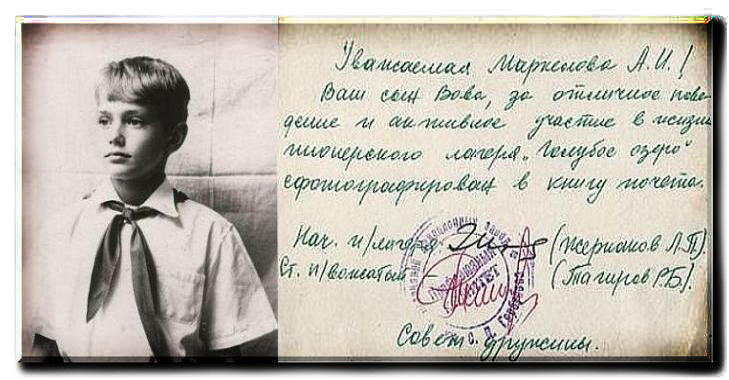 Уважаемая Маркелова А.И.!
Ваш сын Вова, за отличное пове-
дение и активное участие в жизни
пионерского лагеря „Голубое озеро"
сфотографирован в книгу почета.
Нач. п/лагеря (Жернаков Л.П).
Ст. п/вожатый (Тагиров Р.Б).
Совет дружины.